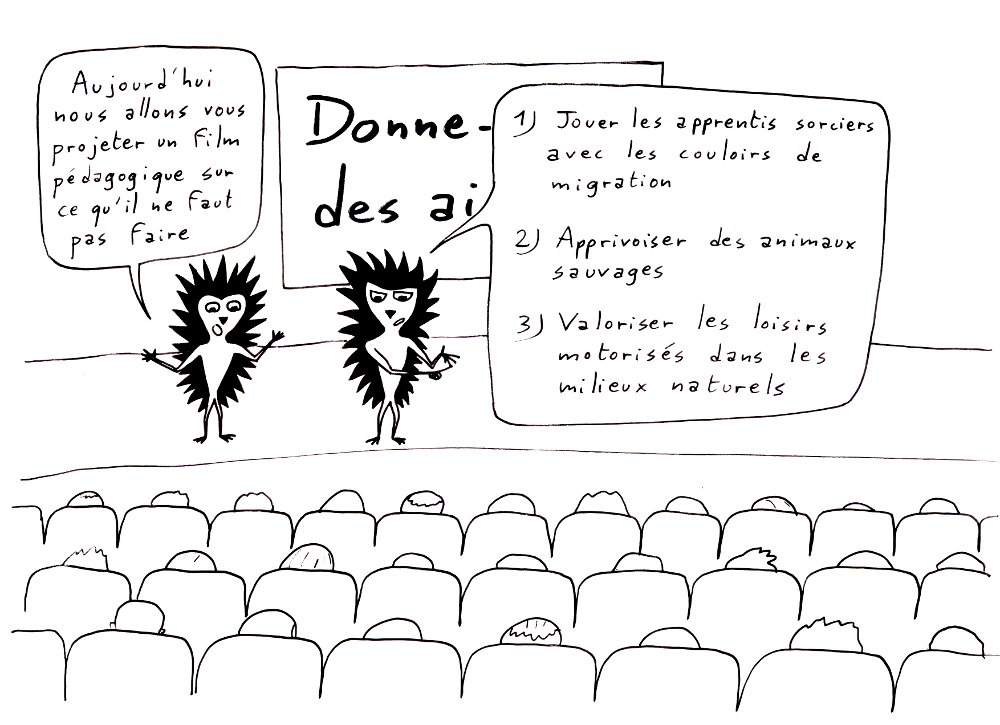 Aujourd'hui
nous allons vous
projeter un film
pédagogique sur
ce qu'il ne faut
pas faire
Donne-
des ai
1) Jouer les apprentis sorciers
avec les couloirs de
migration
2) Apprivoiser des animaux
sauvages
3) Valoriser les loisirs
motorisés dans les
milieux naturels